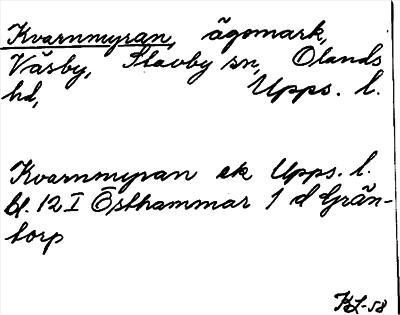 Kvarnmyran, ägomark,
Väsby, Stavby sn, Olands
hd, Upps. l.
Kvarnmyran ek Upps. l.
bl. 12 I Östhammar 1 d Grän-
torp
KL-58